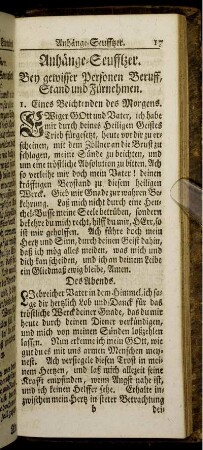 Anhänge-Seufftzer. 17
Anhänge-Seufftzer.
Bey gewisser Personen Beruff,
Stand und Fürnehmen.
1. Eines Beichtenden des Morgens.
EWiger GOtt und Vater, ich habe
mir durch deines Heiligen Geistes
Trieb fürgesetzt, heute vor dir zu er-
scheinen, mit dem Zöllner an die Brust zu
schlagen, meine Sünde zu beichten, und
um eine tröstliche Absolution zu bitten. Ach
so verleihe mir doch mein Vater! deinen
kräfftigen Beystand zu diesem heiligen
Werck. Gieb mir Gnade zur wahren Be-
kehrung. Laß mich nicht durch eine Heu-
chel-Busse meine Seele betrüben, sondern
bekehre du mich recht, hilff du mir, HErr, so
ist mir geholffen. Ach führe doch mein
Hertz und Sinn, durch deinen Geist dahin,
daß ich mög alles meiden, was mich und
dich kan scheiden, und ich an deinem Leibe
ein Gliedmaß ewig bleibe, Amen.
Des Abends.
LIebreicher Vater in dem Himmel, ich sa-
ge dir hertzlich Lob und Danck für das
tröstliche Werck deiner Gnade, das du mir
heute durch deinen Diener verkündigen,
und mich von meinen Sünden loßzehlen
lassen. Nun erkenne ich mein GOtt, wie
gut du es mit uns armen Menschen mey-
nest. Ach versiegele diesen Trost in mei-
nem Hertzen, und laß mich allezeit seine
Krafft empfinden, wenn Angst nahe ist,
und ich keinen Helffer sehe. Erhalte in-
zwischen mein Hertz in steter Betrachtung
b dei-